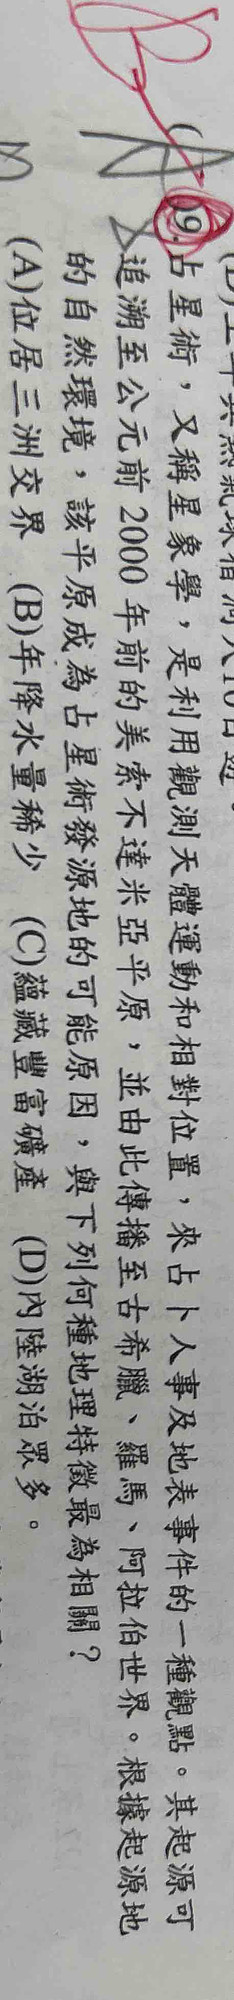 (D)上午其熱氣球
9.占星術，又稱星象學，是利用觀測天體運動和相對位置，來占卜人事及地表事件的一種觀點。其起源可
追溯至公元前2000年前的美索不達米亞平原，並由此傳播至古希臘、羅馬、阿拉伯世界。根據起源地
的自然環境，該平原成為占星術發源地的可能原因，與下列何種地理特徵最為相關？
(A)位居三洲交界 (B)年降水量稀少 (C)蘊藏豐富礦產 (D)內陸湖泊眾多。